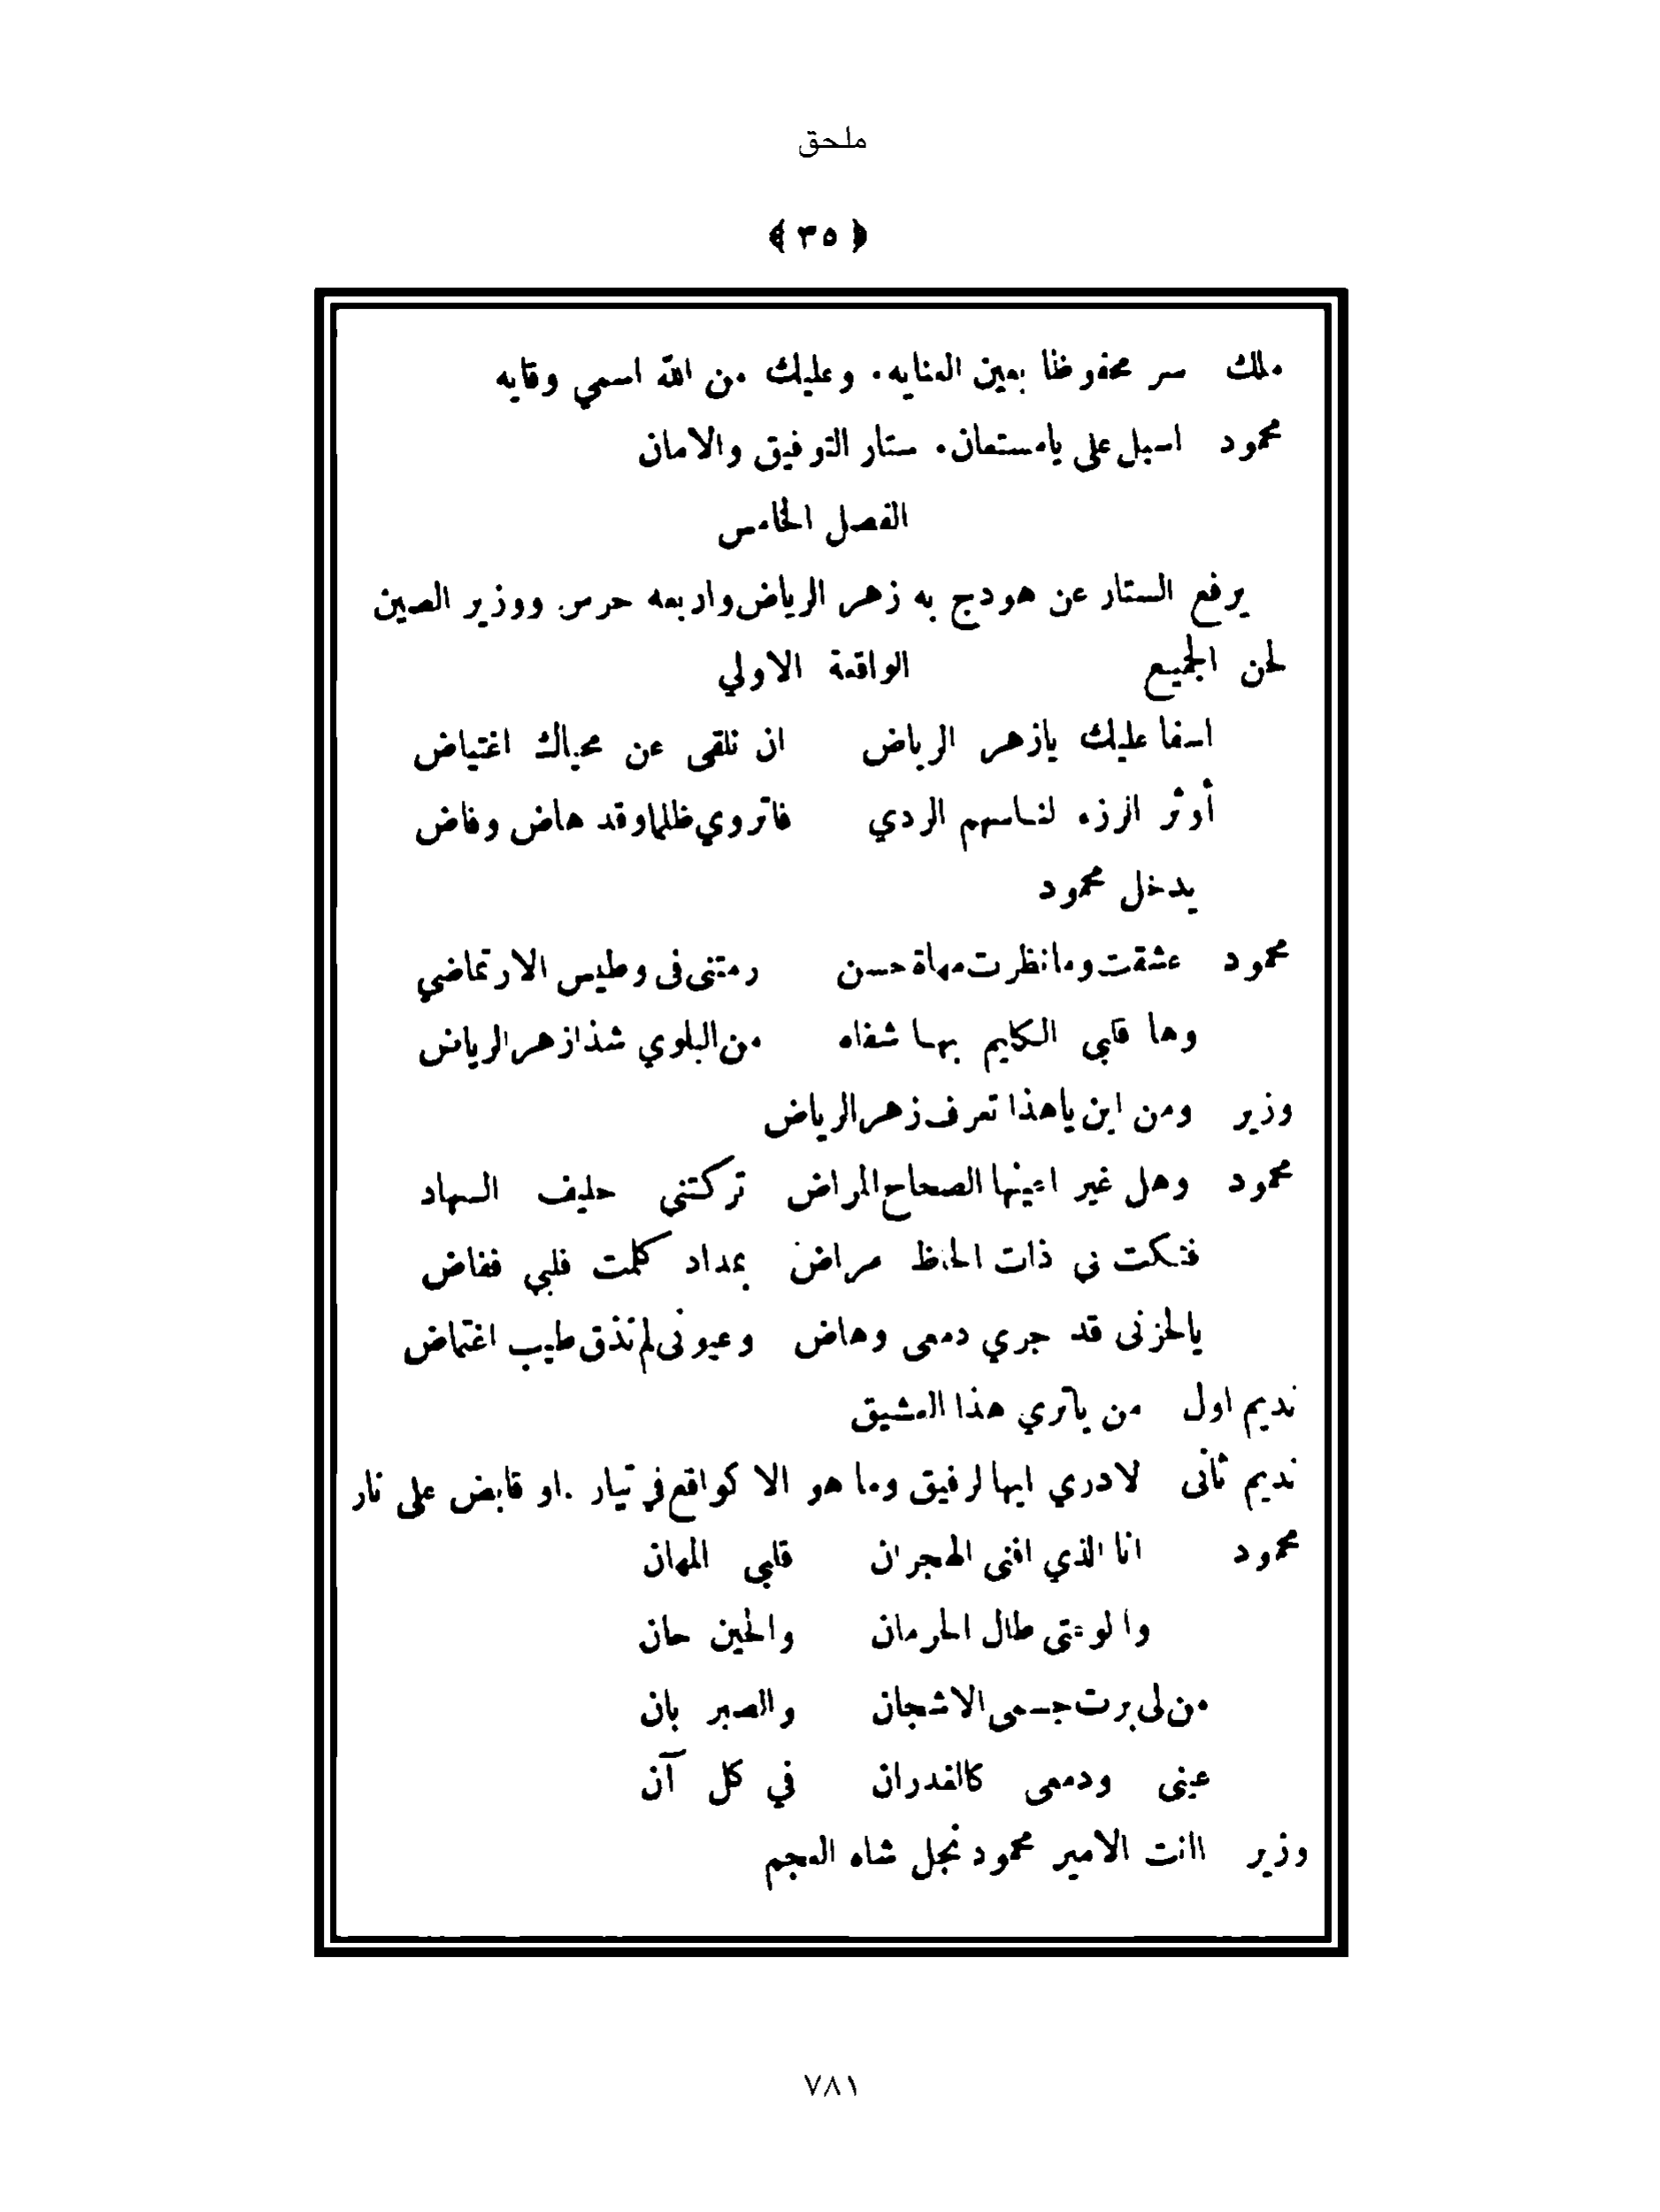 ملحق
﴿ ٣٥ ﴾
ملك سر محفوظا بعين العنايه . وعليك من الله اسمي وقايه
محمود اسبل على يامستعان . ستار التوفيق والامان
الفصل الخامس
يرفع الستار عن هودج به زهر الرياض واربعه حرس ووزير الصين
لحن الجميع الواقعة الاولي
اسفا عليك يازهر الرياض ان نلقى عن محياك اغتياض
أوثر الرزء لنا سهم الردي فاتروي ظلما وقد هاض وفاض
يدخل محمود
محمود عشقت وما نظرت مهاة حسن رمتنى فى وطيس الارتماضي
وها قلبى الكليم بها شفاه من البلوي شذا زهر الرياض
وزير ومن اين ياهذا تعرف زهر الرياض
محمود وهل غير اعينها الصحاح المراض تركتني حليف السهاد
فتكت بي ذات الحاظ مراض بمداد كلمت قلبي ففاض
يالحزنى قد جري دمعى وهاض وعيونى لم تذق طيب اغتماض
نديم اول من ياتري هذا العشيق
نديم ثانى لادري ايها لرفيق وما هو الا كواقع في تيار . او قابض على نار
محمود انا الذي افنى الهجران قلبي المهان
والوعتى طال الحرمان والحين حان
من لى برت جسمى الاشجان والصبر بان
عينى ودمعى كالغدران في كل آن
وزير اانت الامير محمود نجل شاه العجم
٧٨١